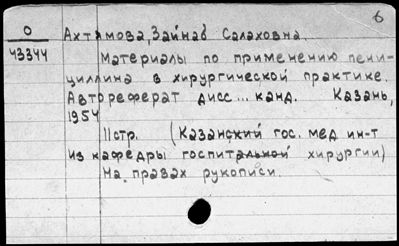 6
О Ахтямова, Зайнаб Салаховна.
43344 Материалы по применению пени-
циллина в хирургической практике.
Автореферат дисс... канд. Казань,
1954
11стр. (Казанский гос. мед ин-т
из кафедры госпитальной хирургии)
На правах рукописи.